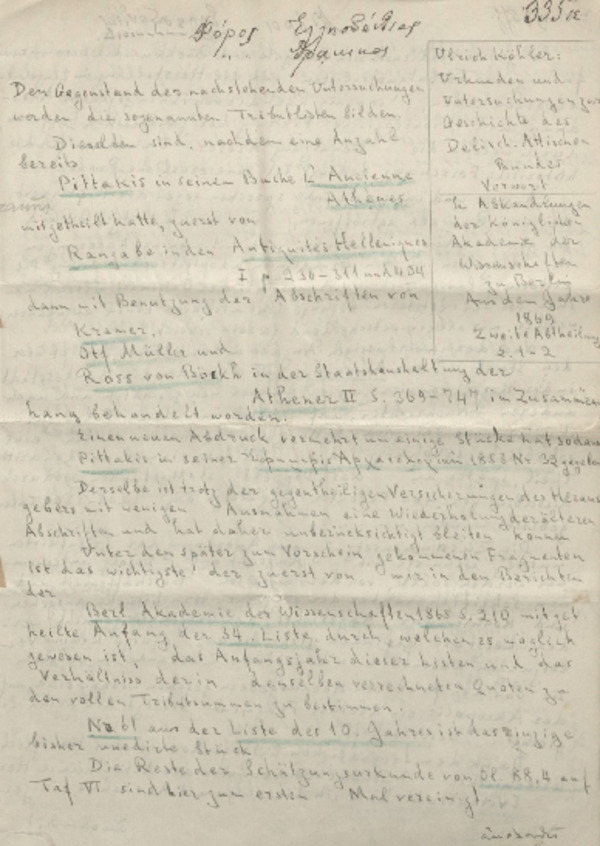 335α
Φόρος Ἑλλησπόντιος
" Θρακικος
Ulrich Köhler:
Urkunden und
Untersuchungen zur
Geschichte des
Delisch-Attischen
Bundes
Vorwort
In Abhandlungen
der Königlichen
Akademie der
Wissenschaften
zu Berlin
Aus dem Jahre
1869
Zweite Abtheilung
S. 1-2
Den Gegenstand der nachstehenden Untersuchungen
werden die sogenannten Tributlisten bilden.
Dieselben sind, nachdem eine Anzahl
bereits
Pittakis in seinem Buche L' Ancienne
Athenes
mitgetheilt hatte, zuerst von
Rangabe in den Antiquites Helleniques
I p. 236-311 und 404
dann mit Benutzung der Abschriften von
Kramer,
Otf Müller und
Ross von Boekh in der Staatshaushaltung der
Athener II S. 369-747 im Zusammen
hang behandelt worden.
Einen neuen Abdruck vermehrt um einige Stücke hat sodann
Pittakis in seiner 1853 Nr. 32 gegeben
Derselbe ist trotz der gegentheiligen Versicherungen des Heraus
gebers mit wenigen Ausnahmen eine Wiederholung der älteren
Abschriften und hat daher unberücksichtigt bleiben können
Unter den später zum Vorschein gekommenen Fragmenten
ist das wichtigste der zuerst von mir in den Berichten
der
Berl Akademie der Wissenschaften 1865 S. 210 mitget
heilte Anfang der 34. Liste, durch welchen es möglich
gewesen ist, das Anfangsjahr dieser Listen und das
Verhältniss der in denselben verrechneten Quoten zu
den vollen Tributsummen zu bestimmen.
No 61 aus der Liste des 10. Jahres ist das einzige
bisher unedirte Stück.
Die Reste der Schätzungsurkunde von Ol. 88,4 auf
Taf VI sind hier zum ersten Mal vereinigt